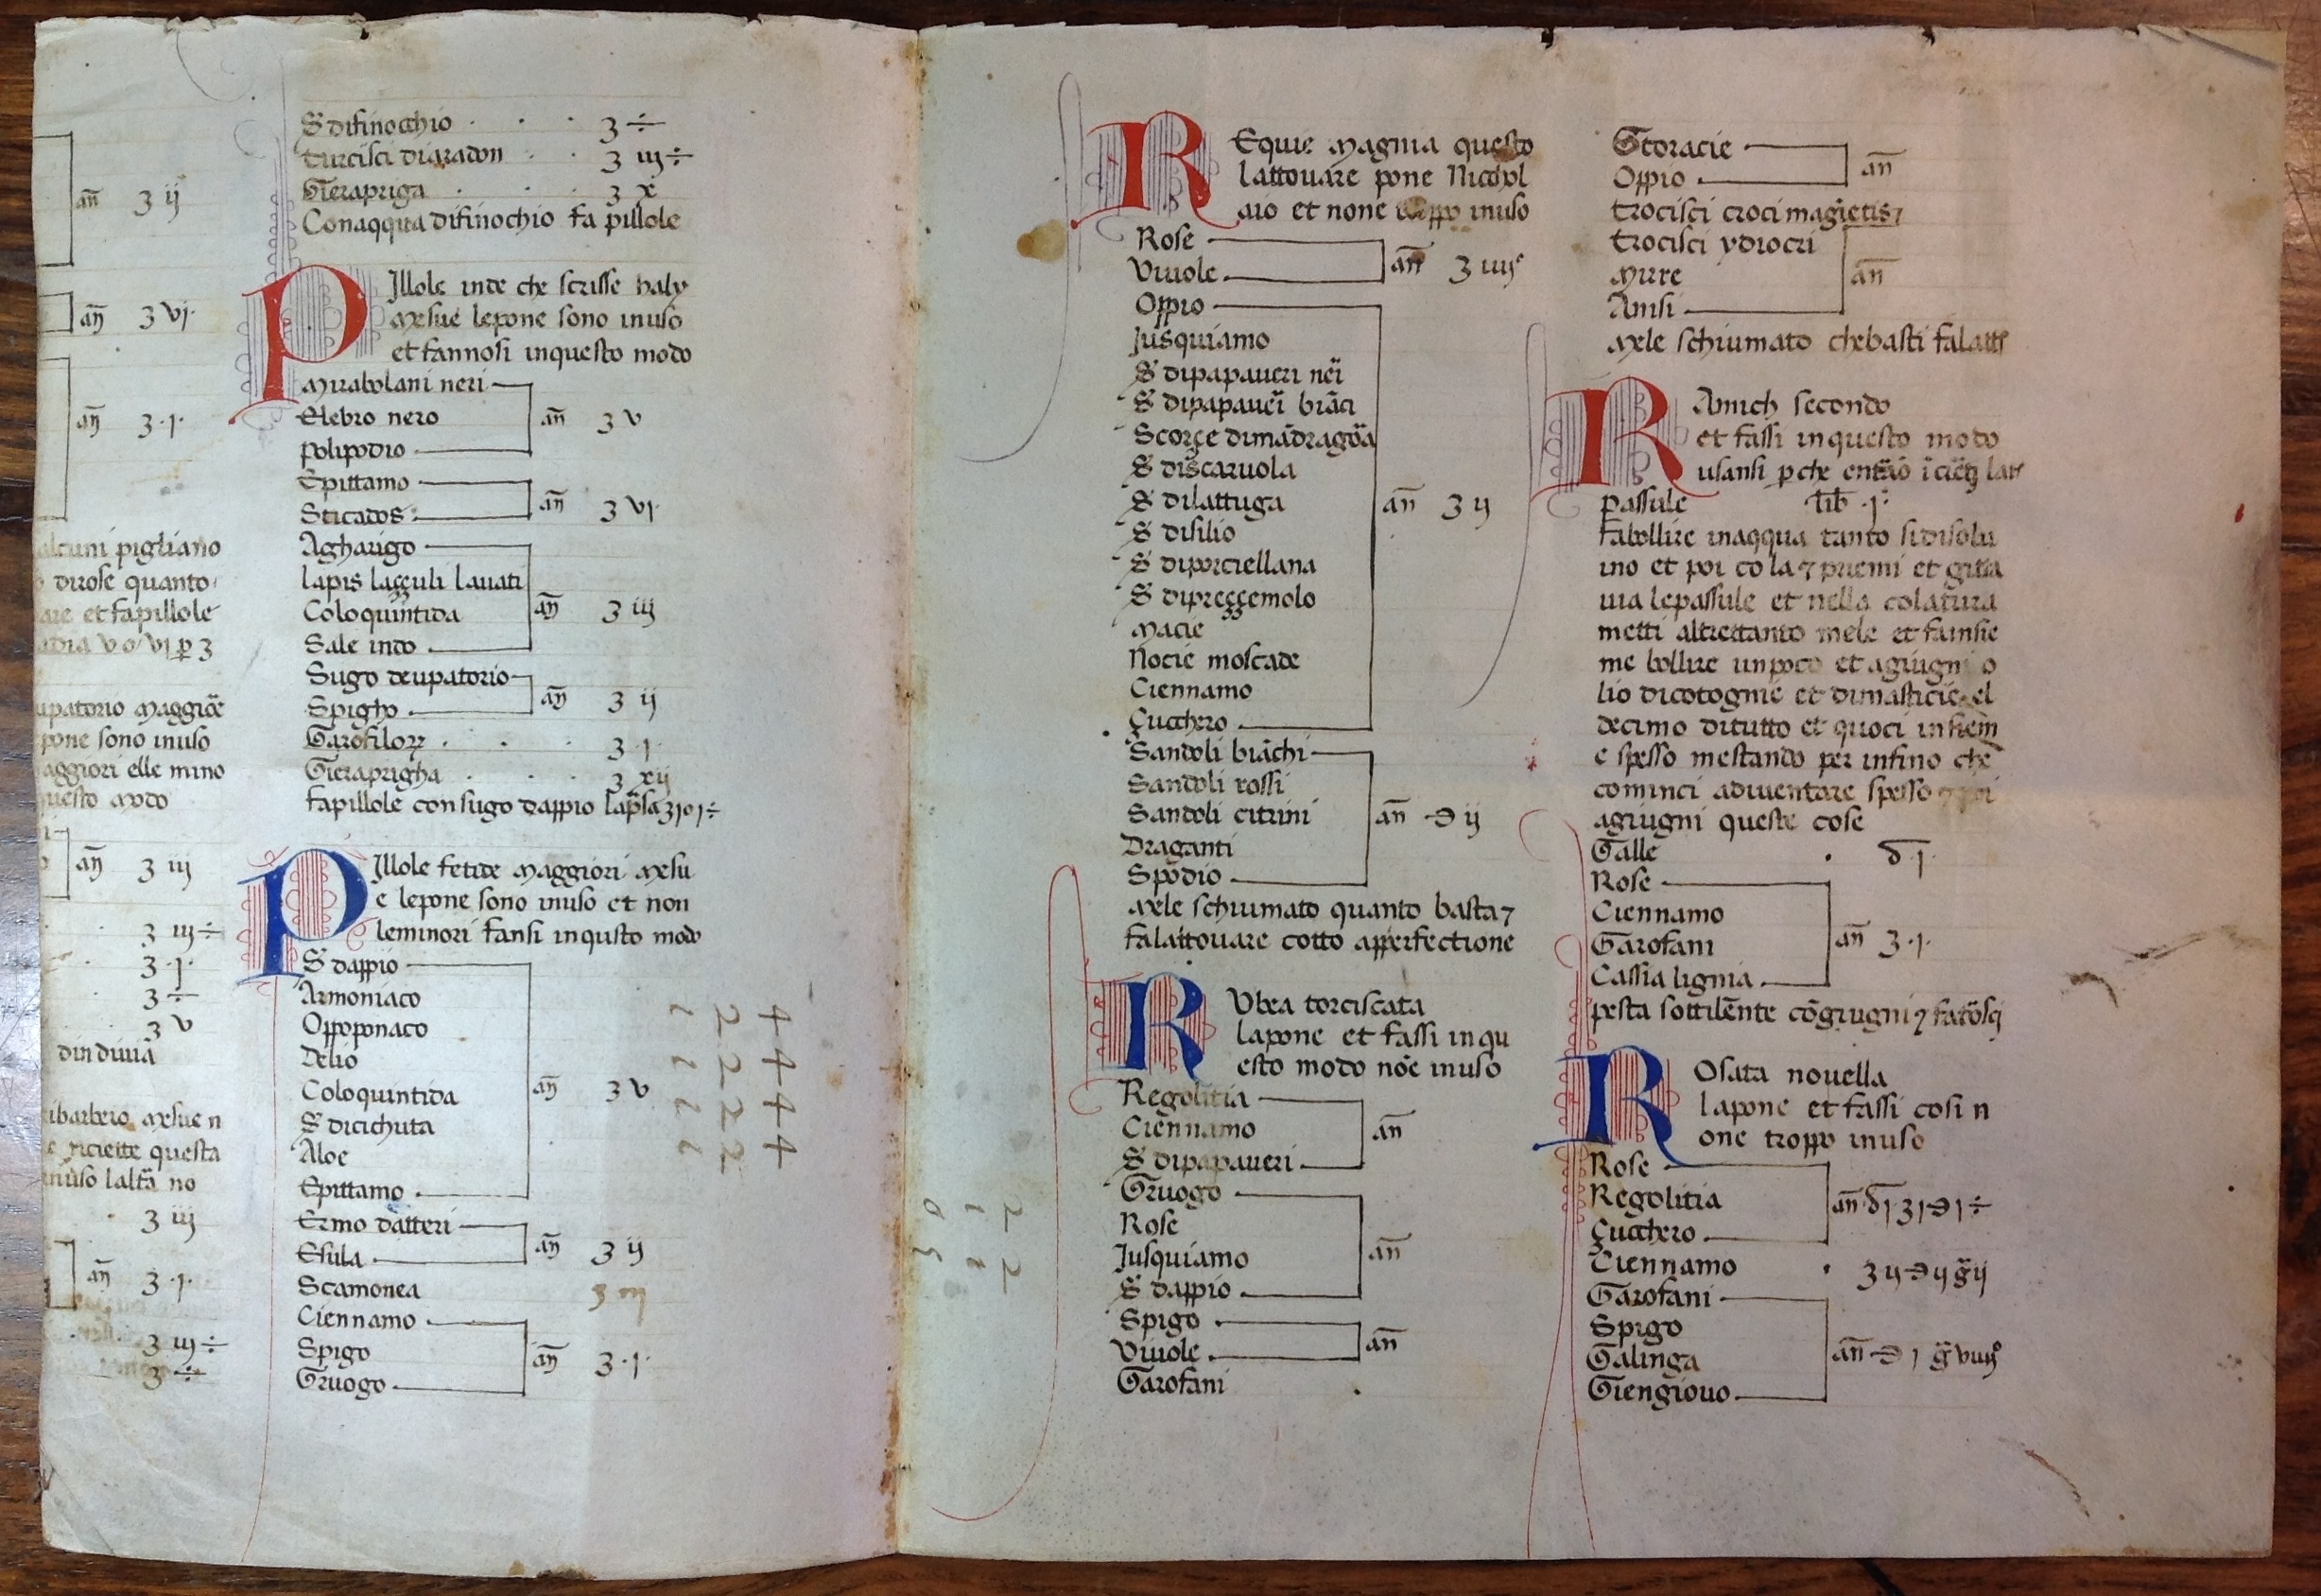 añ ʒ ij
añ ʒ vj·
añ ʒ ·j·
alcuni pigliano
dirose quanto
are et fapillole
adra v o vj ꝑ ʒ
upatorio maggiõe
pone sono inuso
aggiori elle mino
uesto modo
añ ʒ iij
ʒ iij÷
ʒ ·j·
ʒ ÷
ʒ v
dindiuiã
ibarbero mesue n
riciette questa
inuso laltã no
ʒ iij
añ ʒ ·j·
ʒ iij÷
ʒ ÷
S̃ difinocchio · · · ʒ ÷
turcisci diaradon · · ʒ iij÷
Gierapriga · · · ʒ x
Conaqqua difinochio fa pillole
Pillole inde che scrisse haly
mesue lepone sono inuso
et fannosi inquesto modo
Mirabolani neri
Elebro nero añ ʒ v
polipodio
Epittamo
añ ʒ vj·
Sticados
Agharigo
lapis laççuli lauati
Coloquintida añ ʒ iij
Sale indo
Sugo deupatorio
añ ʒ ij
Spigho
Garofiloꝝ · · · ʒ ·j·
Gieraprigha · · · ʒ xij
fapillole con sugo dappio lap̃sa ʒj o j÷
Pillole fetide maggiori mesu
e lepone sono inuso et non
leminori fansi inqusto modo
S̃ dappio
Armoniaco
Oppoponaco
Delio
Coloquintida añ ʒ v
S̃ dicichuta
Aloe
Epittamo
Ermo datteri
añ ʒ ij
Esula
Scamonea ʒ iij
Ciennamo
Spigo añ ʒ ·j·
Gruogo
4 4 4 4
2 2 2 2
Requie magna questo
lattouare pone Nicchol
aio et none troppo inuso
Rose
añ ʒ iiijº
Viuole
Oppio
Jusquiamo
S̃ dipapaueri nẽi
S̃ dipapauẽi biãci
Scorçe dimãdragõa
S̃ discaruola
S̃ dilattuga añ ʒ ij
S̃ disilio
S̃ diporciellana
S̃ dipreççemolo
Macie
Nocie moscade
Ciennamo
çucchero
Sandoli biãchi
Sandoli rossi
Sandoli citrini añ ℈ ij
Draganti
Spodio
Mele schiumato quanto basta ⁊
falattouare cotto apperfectione
Rubea torciscata
lapone et fassi inqu
esto modo nõe inuso
Regolitia
Ciennamo añ
S̃ dipapaueri
Gruogo
Rose
Jusquiamo añ
S̃ dappio
Spigo
añ
Viuole
Garofani
Storacie
añ
Oppio
trocisci croci magietis ⁊
trocisci ydiocri
Mirre añ
Anisi
Mele schiumato chebasti falatt
Ramich secondo
et fassi inquesto modo
usansi ꝑche
passule lib̃ ·j·
fabollire inaqqua tanto sidisolu
ino et poi cola ⁊ priemi et gitta
uia lepassule et nella colatura
metti altrettanto mele et fainsie
me bollire unpoco et agiugni o
lio dicotognie et dimasticie el
decimo ditutto et quoci insiem
e spesso mestando per infino che
cominci adiuentare spesso ⁊ poi
agiugni queste cose
Galle · δ j·
Rose
Ciennamo
Garofani añ ʒ ·j·
Cassia lignia
pesta sottilẽnte cõgiugni ⁊ fatõsci
Rosata nouella
lapone et fassi cosi n
one troppo inuso
Rose
Regolitia añ δj ʒj ℈ j÷
çucchero
Ciennamo · ʒ ij ℈ ij g̃ ij
Garofani
Spigo
Galinga añ ℈ j g̃ viiijº
Giengiouo